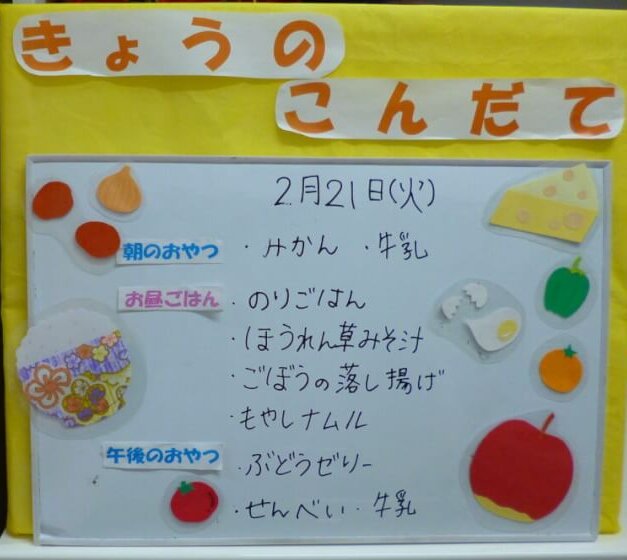 きょうの
こんだて
2月21日(火)
朝のおやつ ・みかん ・牛乳
お昼ごはん ・のりごはん
・ほうれん草みそ汁
・ごぼうの落し揚げ
・もやしナムル
午後のおやつ ・ぶどうゼリー
・せんべい・牛乳